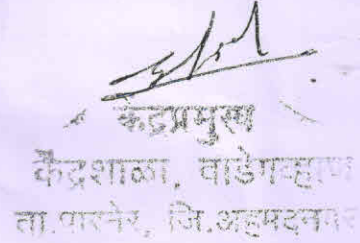 केंद्रप्रमुख
केंद्रशाळा, वाडेगव्हाण
ता.पारनेर, जि.अहमदनगर